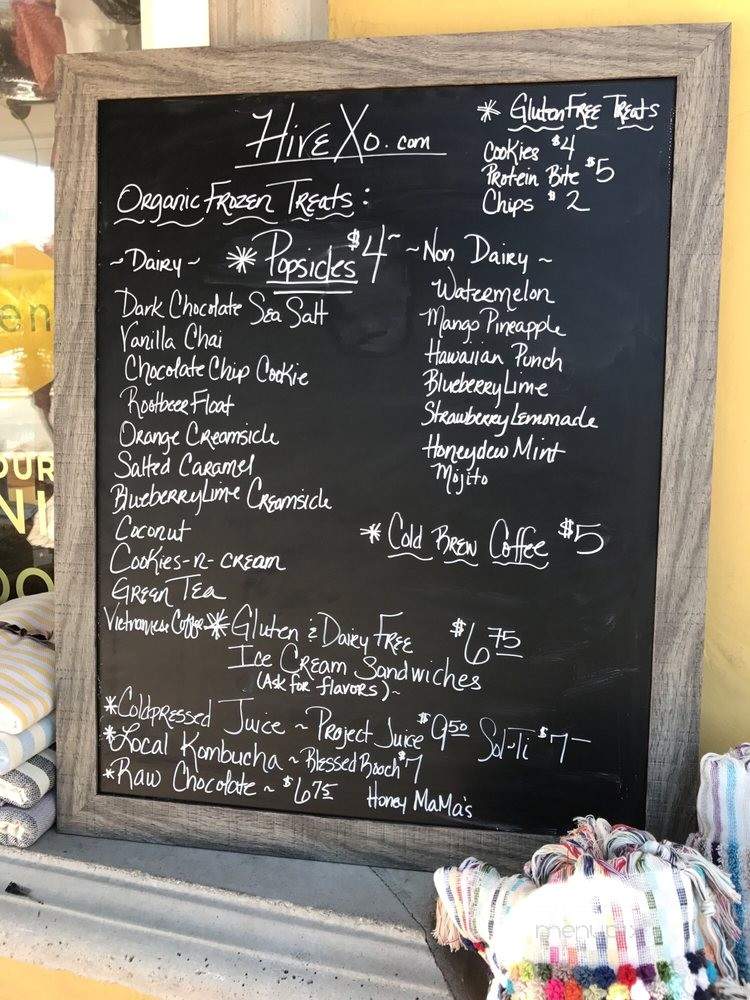 HiveXo.com
* Gluten Free Treats
Cookies $4
Protein Bite $5
Chips $2
Organic Frozen Treats:
* Popsicles $4
~ Dairy ~
Dark Chocolate Sea Salt
Vanilla Chai
Chocolate Chip Cookie
Rootbeer Float
Orange Creamsicle
Salted Caramel
Blueberry Lime Creamsicle
Coconut
Cookies-n-cream
Green Tea
Vietnamese Coffee
~ Non Dairy ~
Watermelon
Mango Pineapple
Hawaiian Punch
Blueberry Lime
Strawberry Lemonade
Honeydew Mint
Mojito
* Cold Brew Coffee $5
* Gluten & Dairy Free $6.75
Ice Cream Sandwiches
(Ask for flavors)~
* Coldpressed Juice ~ Project Juice $9.50 Sol-Ti $7-
* Local Kombucha ~ Blessed Booch $7
* Raw Chocolate ~ $6.75 Honey MaMa's
en
OUR
NI
OO
menupix